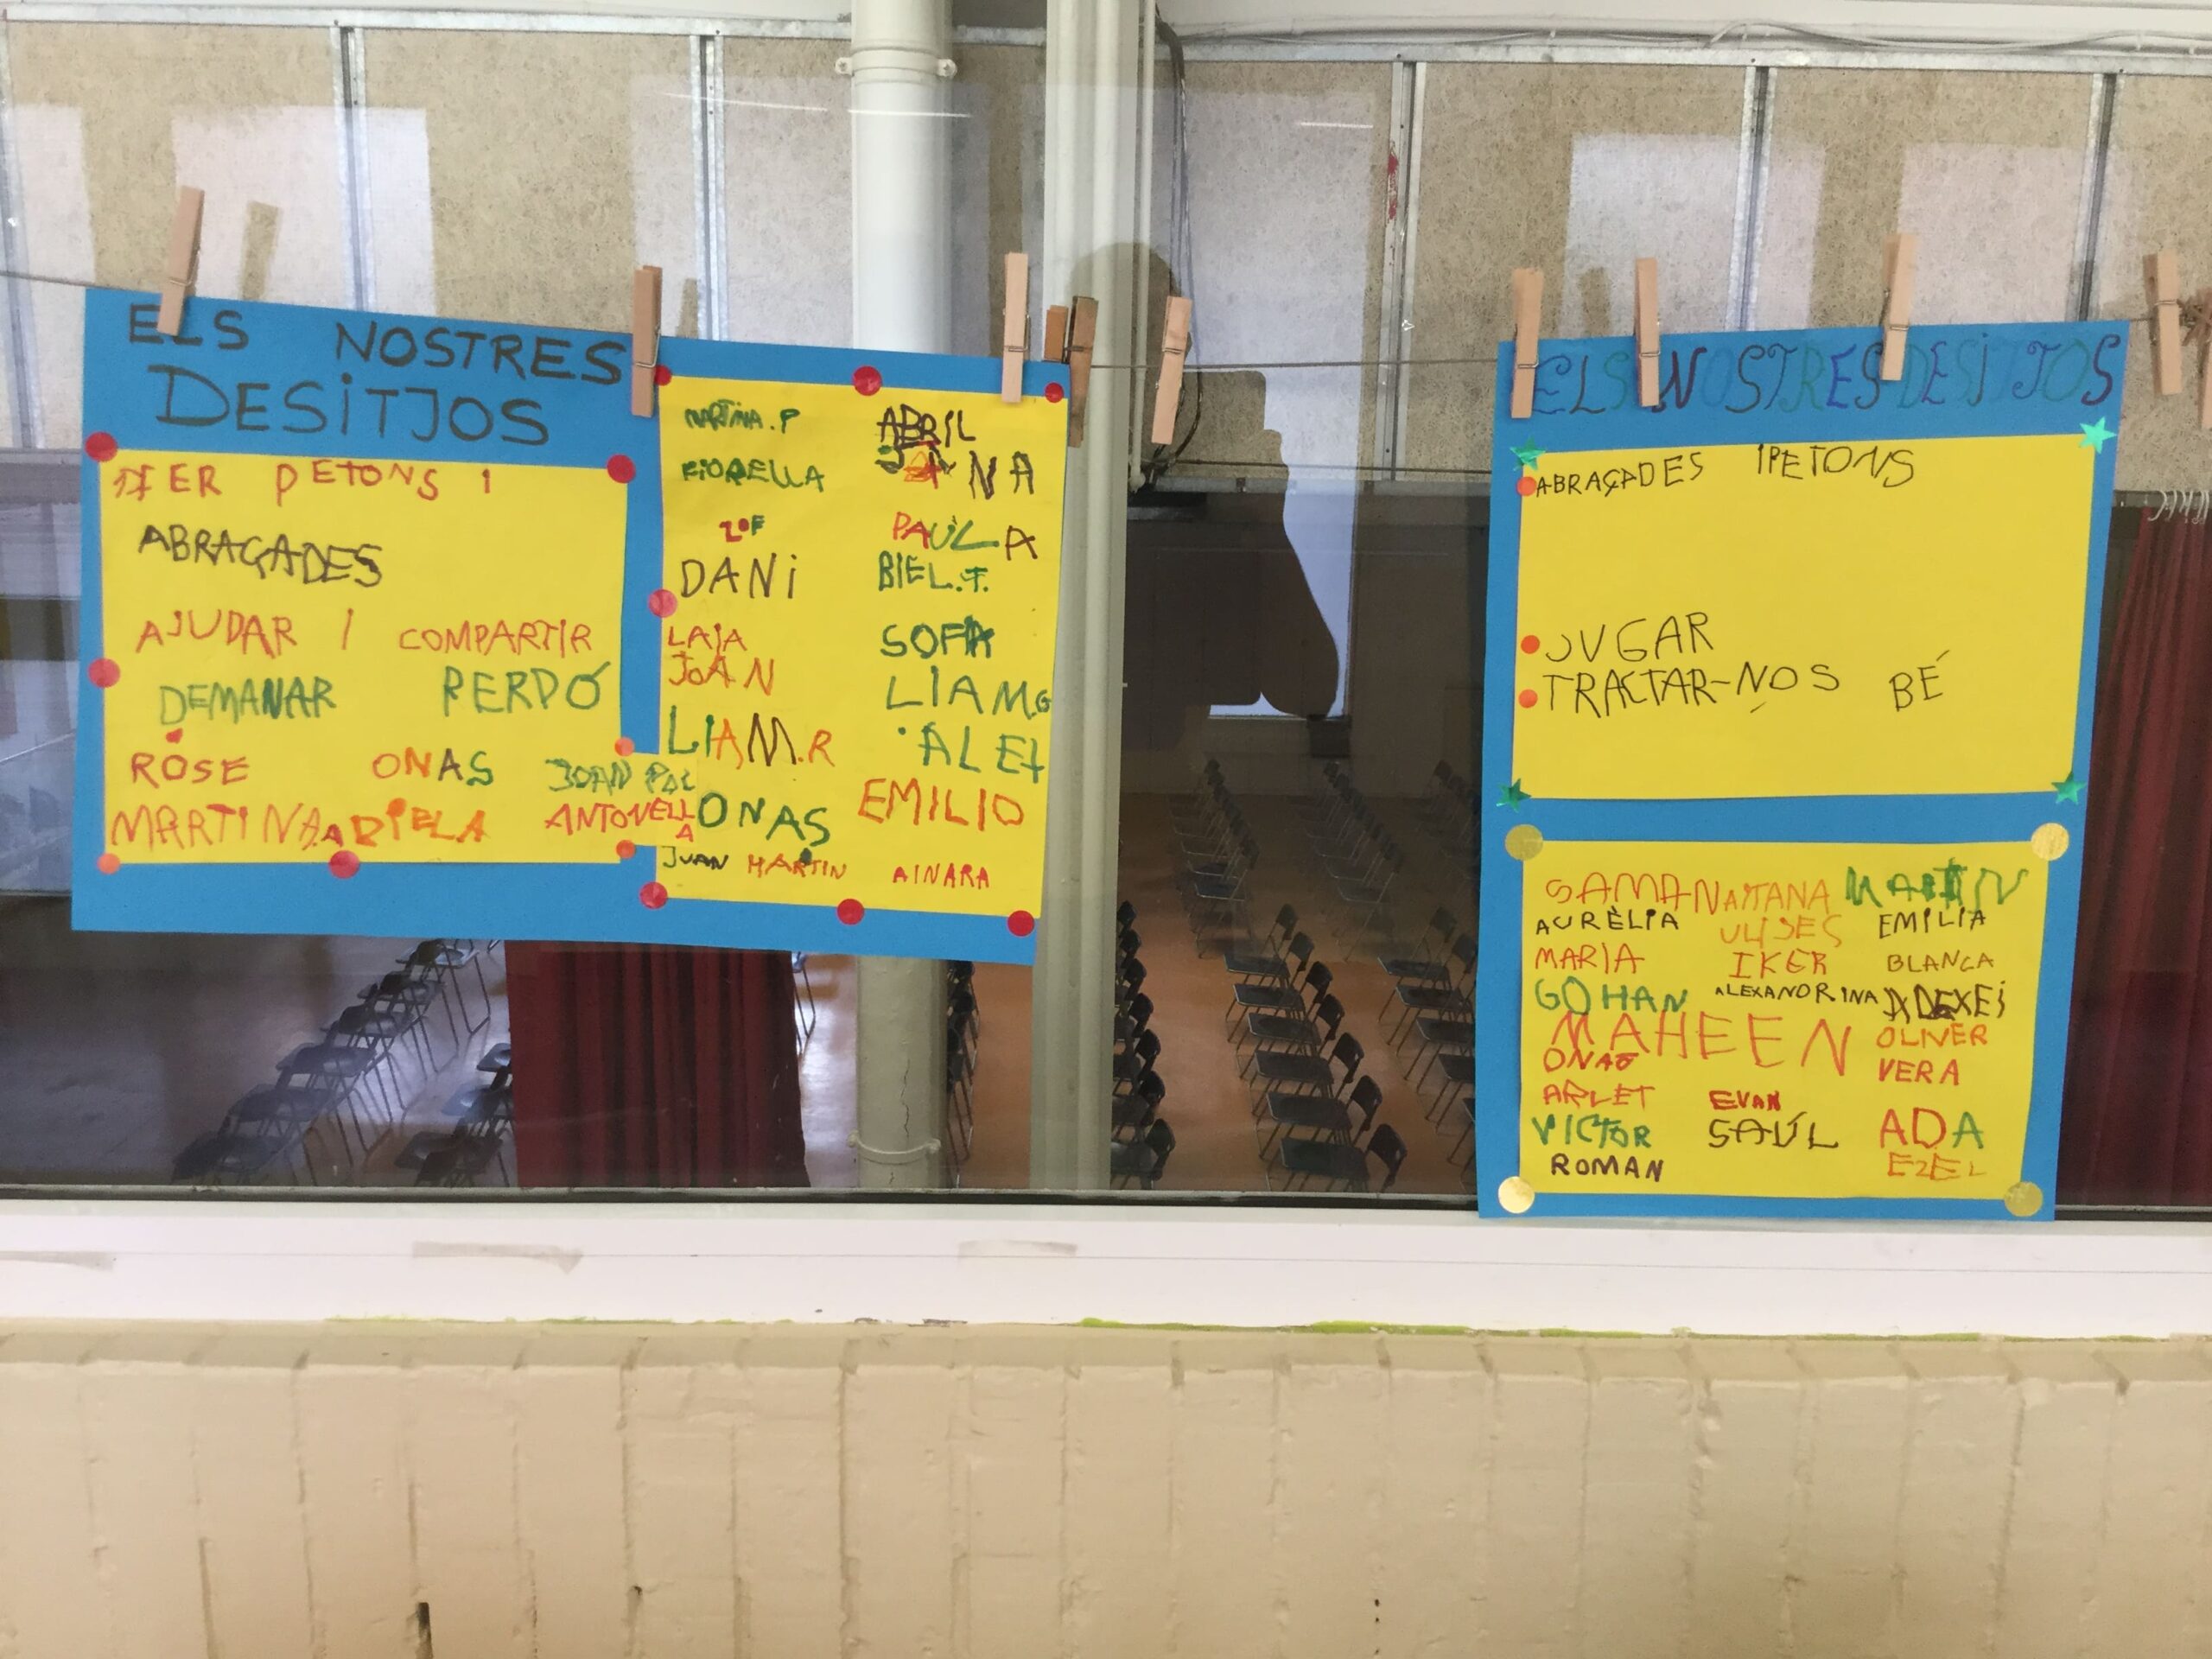 ELS NOSTRES
DESITJOS
FER PETONS I
ABRAÇADES
AJUDAR I COMPARTIR
DEMANAR PERDÓ
ROSE ONAS JOAN POL
MARTINA.A DIELA ANTONELLA
MARTINA.P ABRIL
FIORELLA JANA
PAULA
DANI BIEL.T.
LAIA SOFIA
JOAN LIAM.G
LIAM.R ALEX
ONAS EMILIO
JUAN MARTIN AINARA
ELS NOSTRES DESITJOS
ABRAÇADES I PETONS
JUGAR
TRACTAR-NOS BÉ
SAMA NAITANA MARTIN
AURÈLIA ULISES EMILIA
MARIA IKER BLANCA
GOHAN ALEXANDRINA
MAHEEN OLIVER
VERA
ARLET EVAN
VICTOR SAÚL ADA
ROMAN EZEL